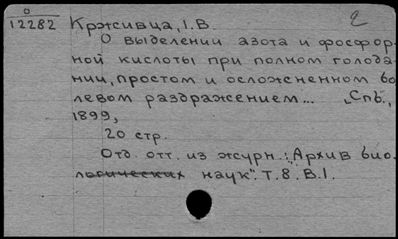 0
12282
Крживца, I. В.
2
О выделении азота и фосфор-
ной кислоты при полном голода-
нии, простом и осложненном бо
левом раздражением... „Спб.,
1899,
20 стр.
Отд. отт. из журн.: „Архив био.
логических наук". Т. 8. В. 1.